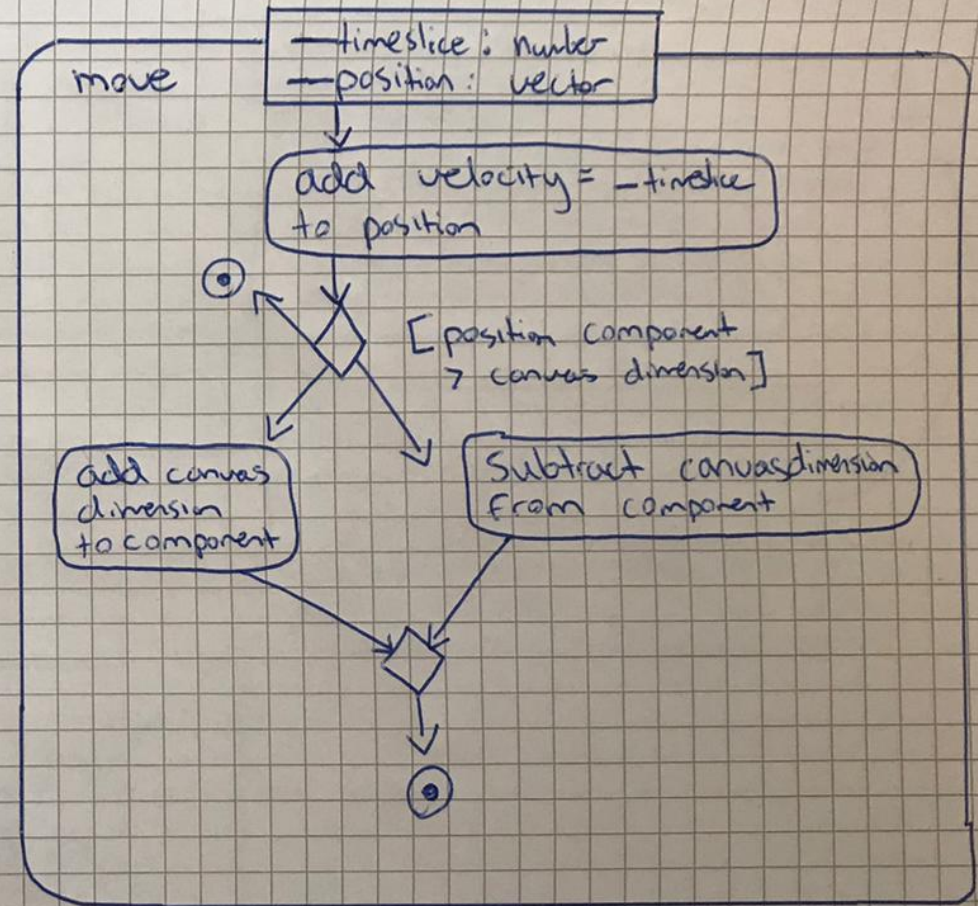 move
—timeslice: number
—position: vector
add velocity = _timeslice
to position
[position component
> canvas dimension]
add canvas
dimension
to component
Subtract canvasdimension
from component